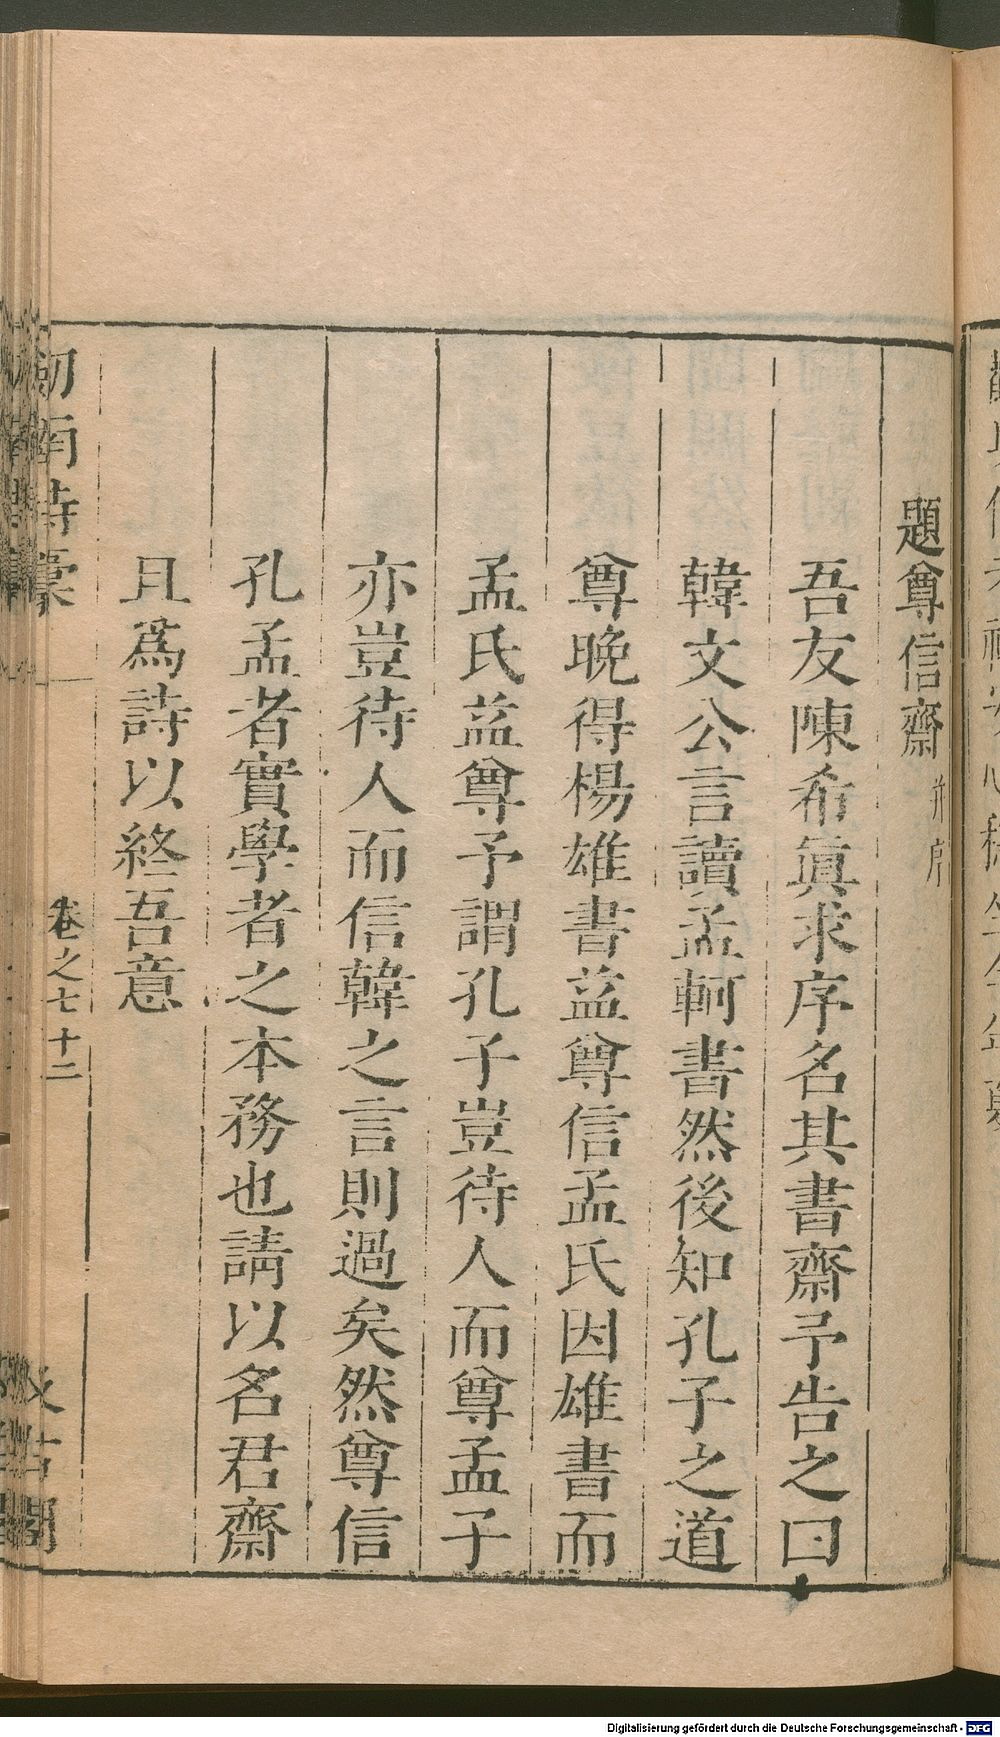 題尊信齋并序
吾友陳希眞求序名其書齋予告之曰
韓文公言讀孟軻書然後知孔子之道
尊晚得楊雄書益尊信孟氏因雄書而
孟氏益尊予謂孔子豈待人而尊孟子
亦豈待人而信韓之言則過矣然尊信
孔孟者實學者之本務也請以名君齋
且爲詩以終吾意
劒南詩稾
卷之七十二
汲古閣
Digitalisierung gefördert durch die Deutsche Forschungsgemeinschaft - DFG